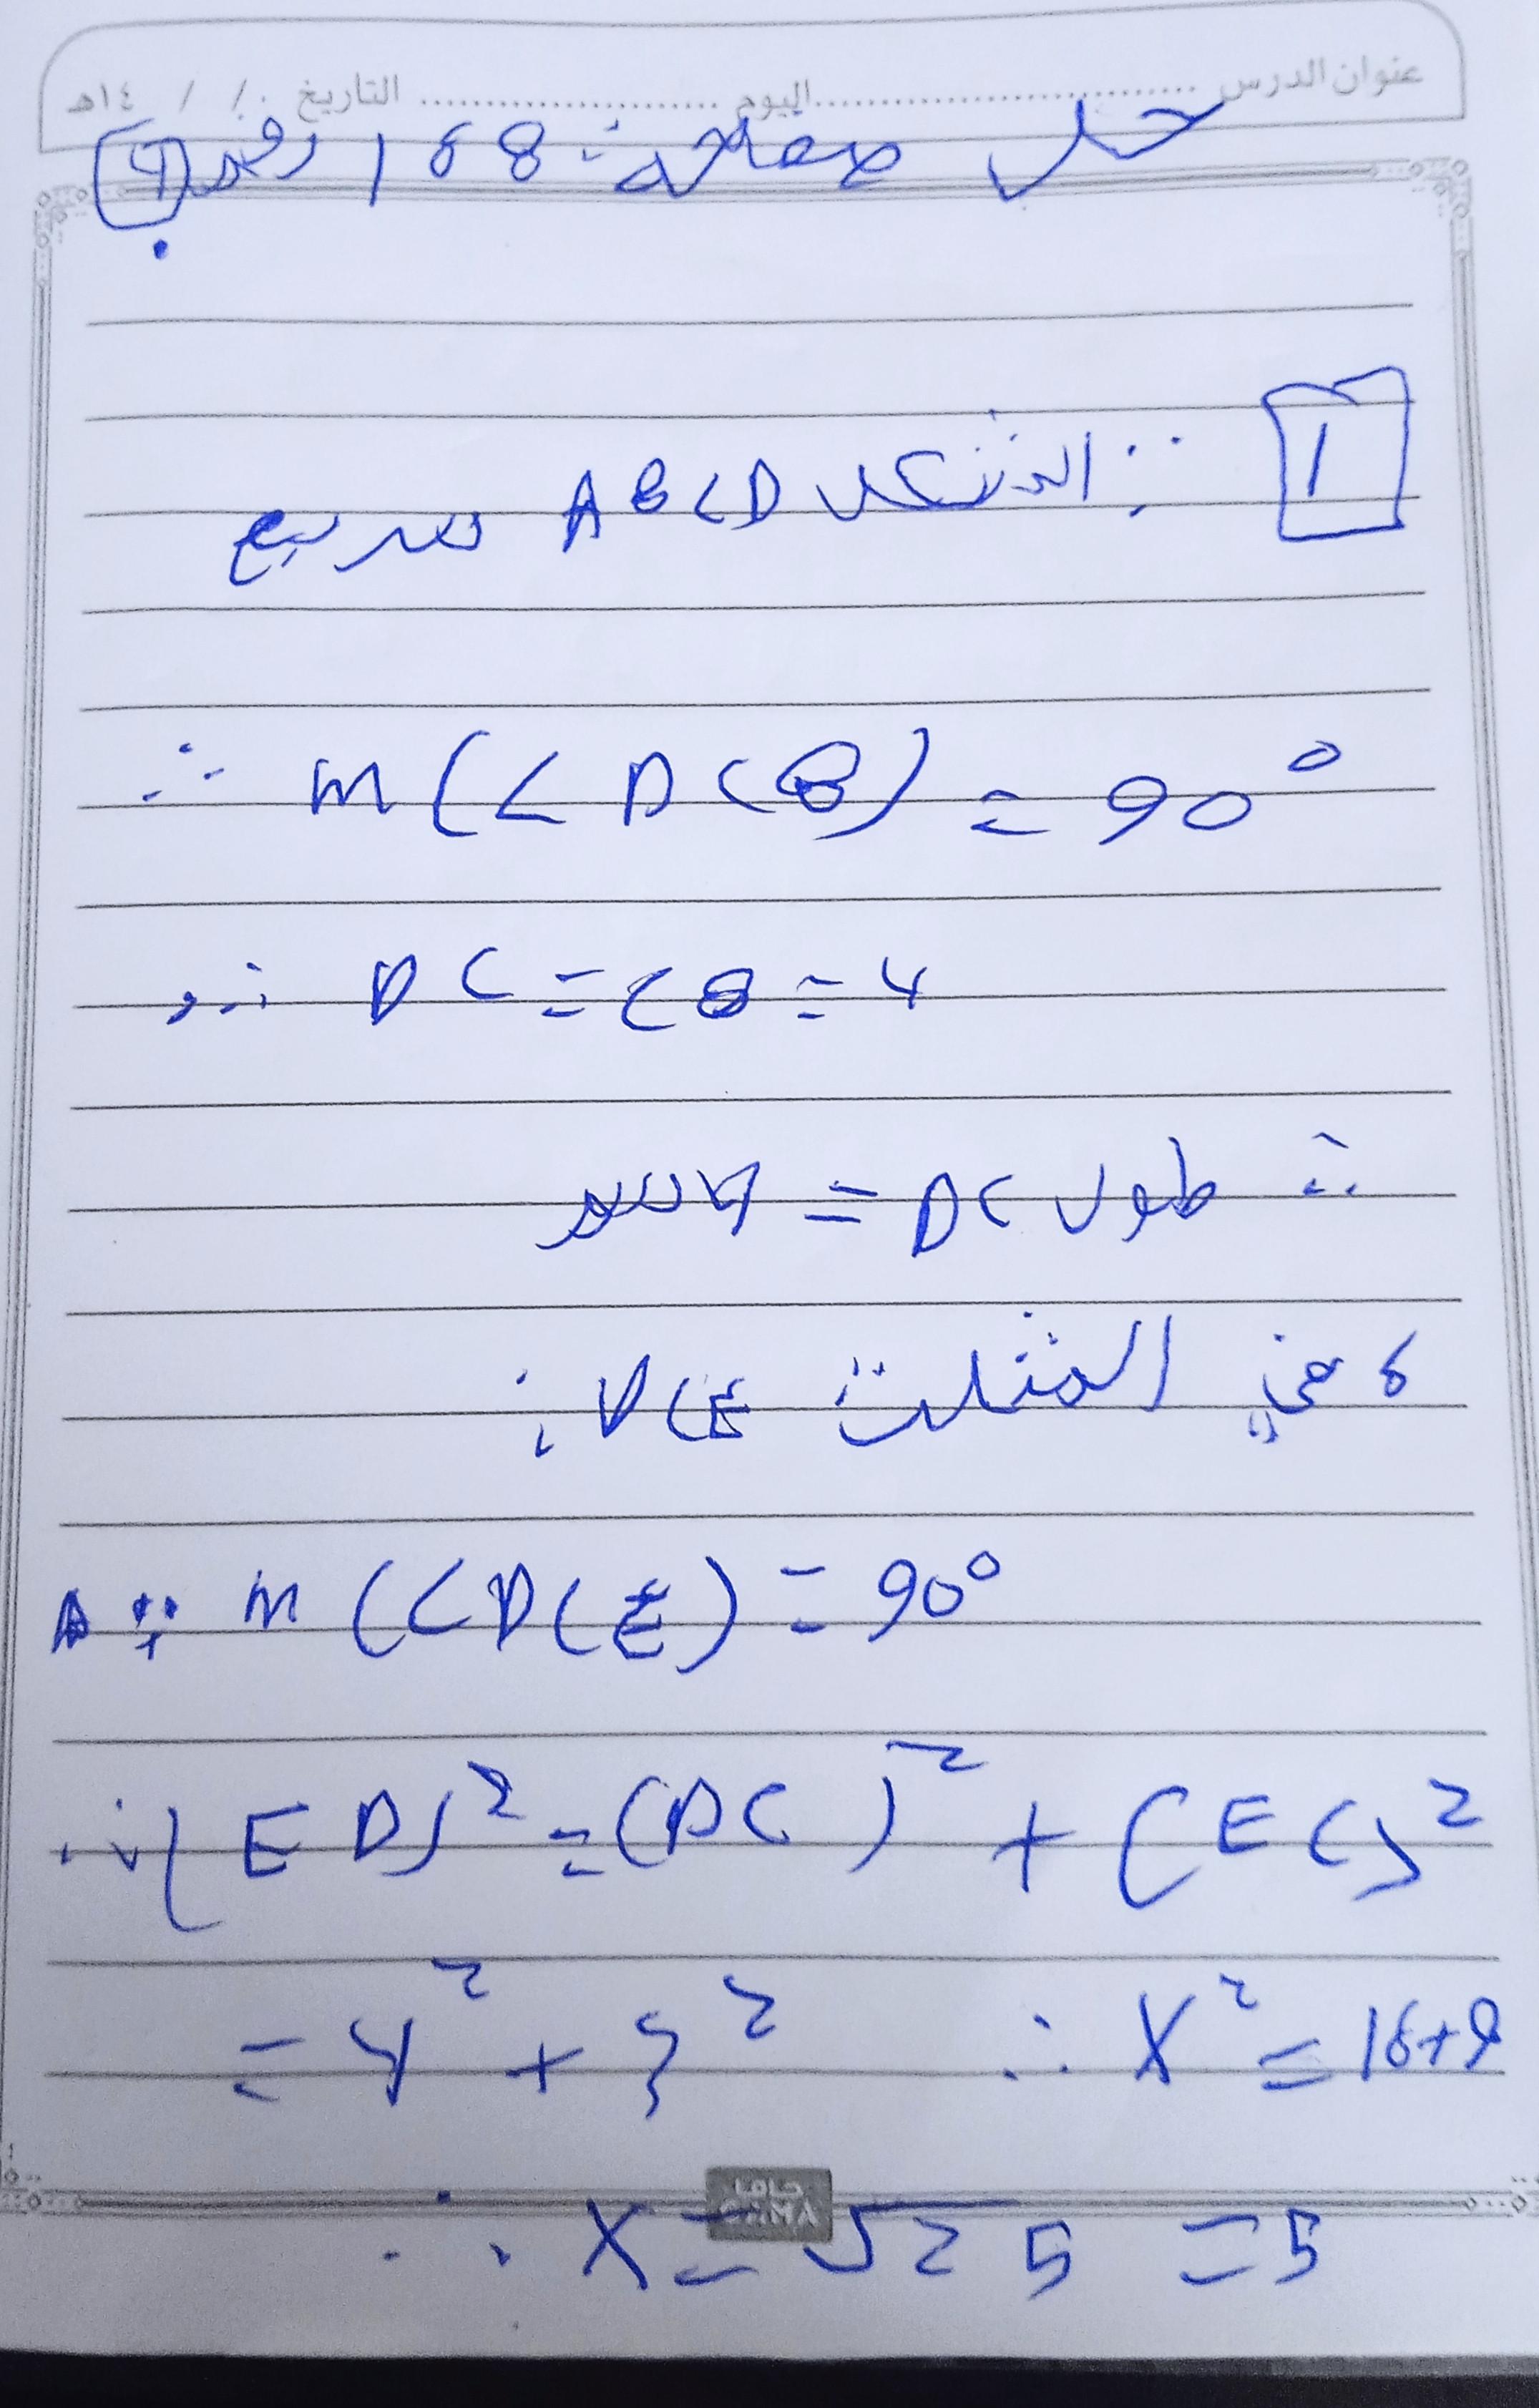 عنوان الدرس ........................ اليوم ........................ التاريخ / / ١٤هـ
حل صفحة: 168 رقم
1 ∵ الشكل ABCD مربع
∴ m(∠DCB) = 90°
∴ DC = CB = 4
∴ طول DC =
، في المثلث DCE:
∵ m(∠DCE) = 90°
∴ (ED)² = (DC)² + (EC)²
= 4² + 3² ∴ X² = 16+9
∴ X = √25 = 5